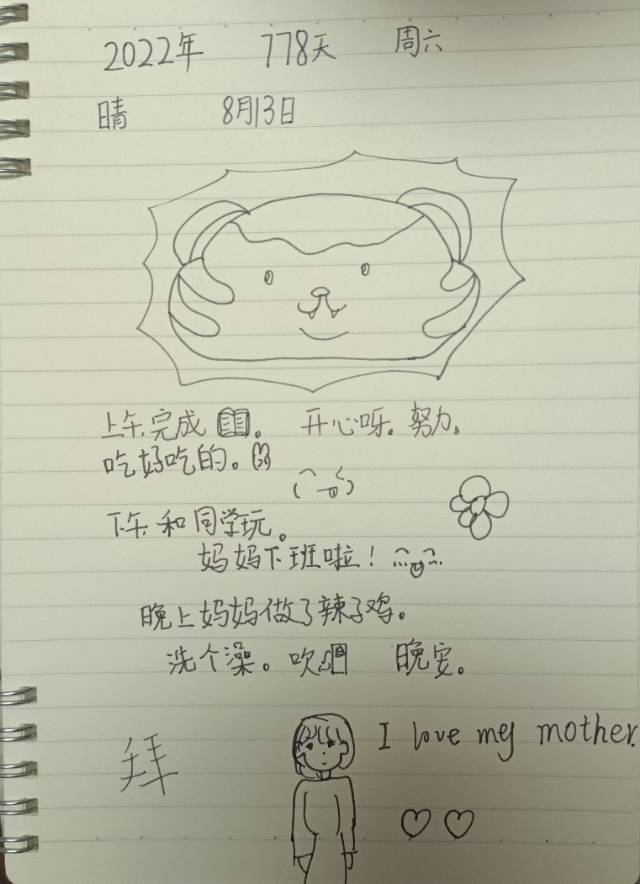 2022年 778天 周六
晴 8月13日
上午完成。 开心呀。努力。
吃好吃的。
下午和同学玩。
妈妈下班啦！
晚上妈妈做了辣子鸡。
洗个澡。吹 晚安。
拜
I love my mother.